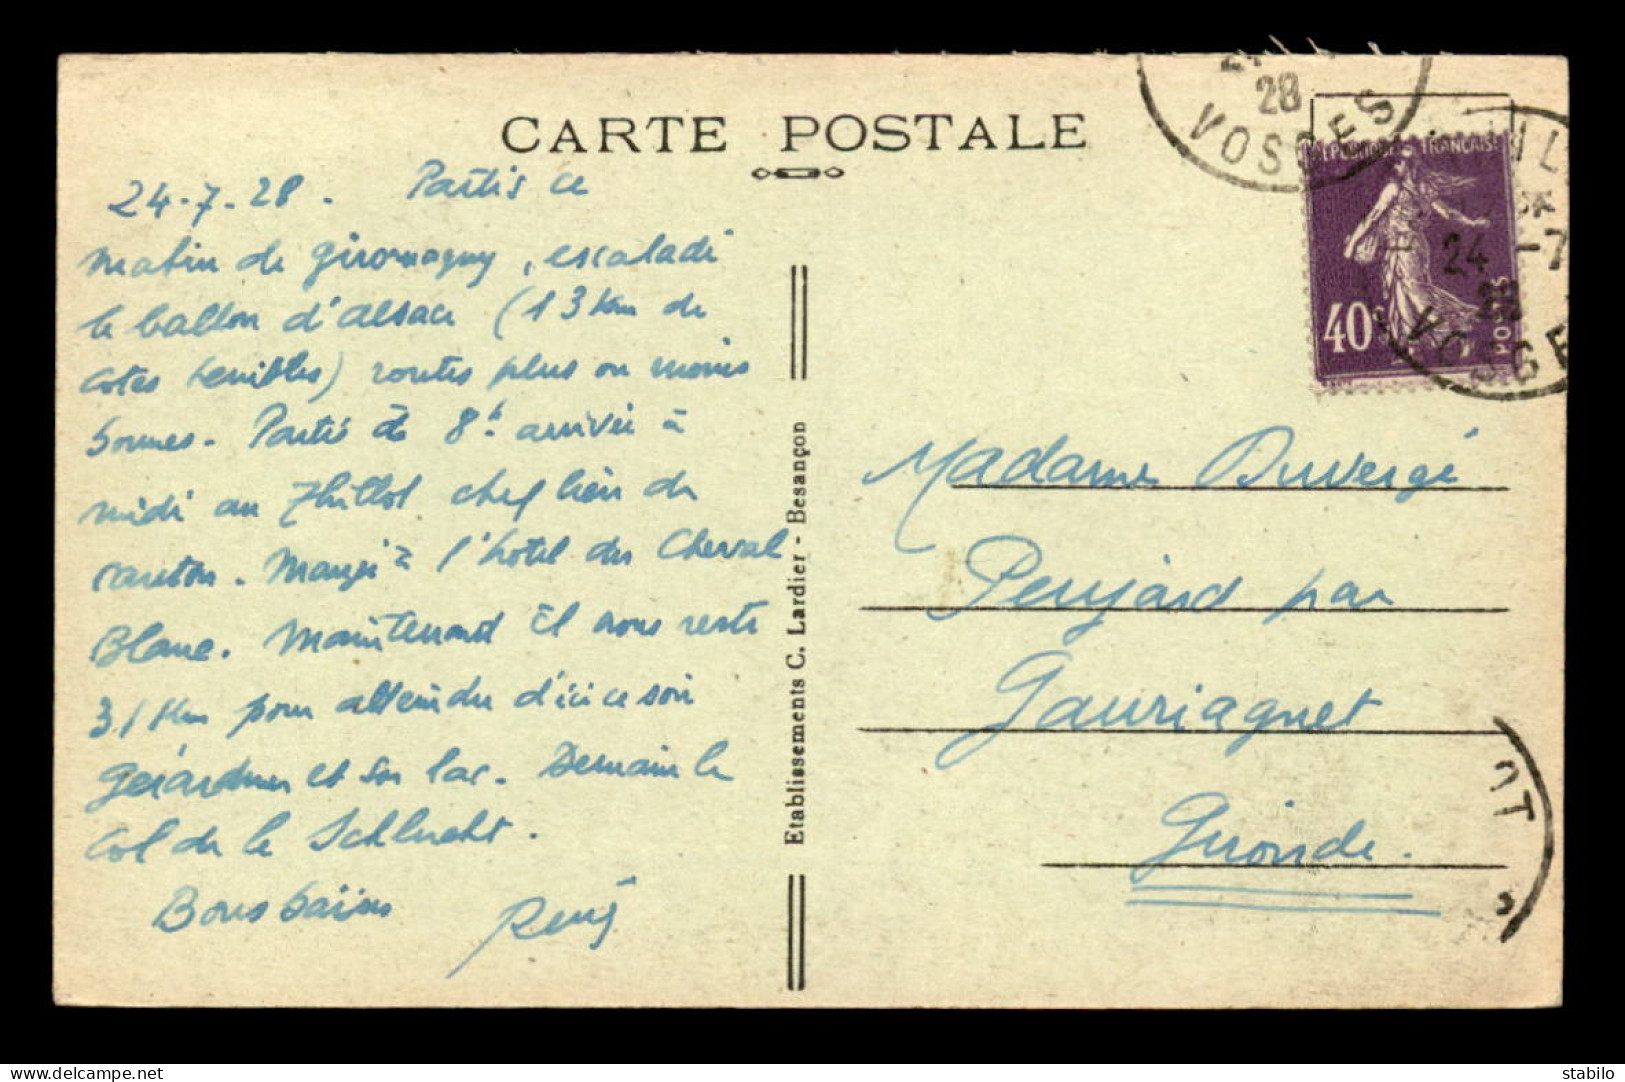 CARTE POSTALE
24-7-28. Partis ce
matin de Giromagny, escaladé
le ballon d'alsace (13 km de
cotes terribles) routes plus ou moins
bonnes. Partis à 8h arrivés à
midi au Thillot chef lieu de
canton. Mangé à l'hotel du Cheval
Blanc. Maintenant il nous reste
31 Km pour atteindre d'ici ce soir
Gérardmer et son lac. Demain le
Col de la Schlucht.
Bons baisers René
Etablissements C. Lardier - Besançon
28
VOSGES
REPUBLIQUE FRANÇAISE
40c
POSTES
24 -7
28
VOSGE
Madame Duvergé
Peujard par
Gauriaguet
Gironde.
OT
www.delcampe.net
stabilo